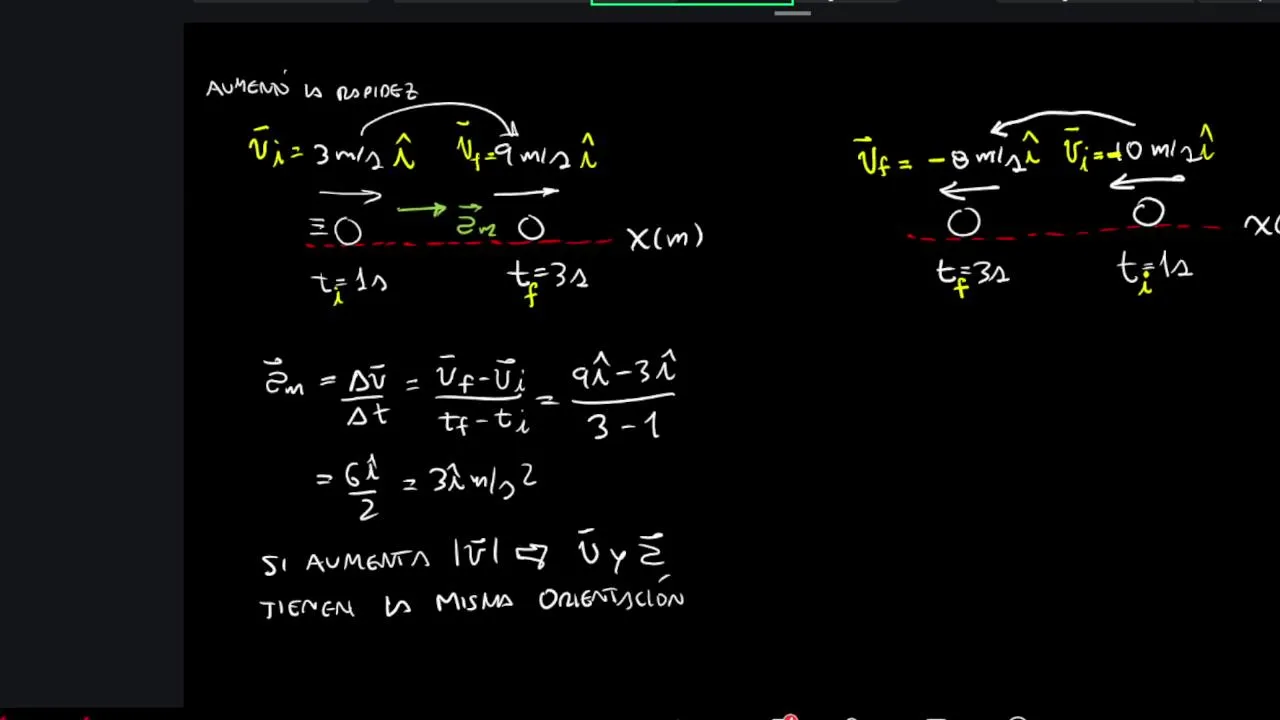 AUMENTÓ LA RAPIDEZ
v̄i = 3 m/s î v̄f = 9 m/s î
a⃗m
X(m)
ti = 1s tf = 3s
a⃗m = Δv̄/Δt = (v̄f - v̄i)/(tf - ti) = (9î - 3î)/(3 - 1)
= 6î/2 = 3î m/s²
SI AUMENTA |v̄| ⇒ v̄ y a⃗
TIENEN LA MISMA ORIENTACIÓN
v̄f = - 8 m/s î v̄i = -10 m/s î
tf = 3s ti = 1s
X(